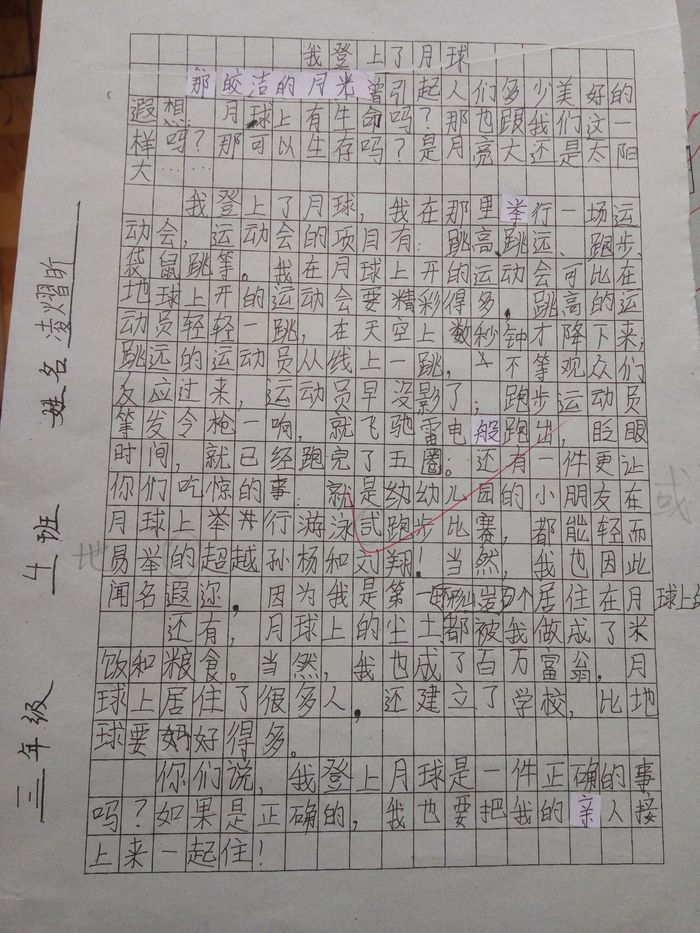 我登上了月球
那皎洁的月光曾引起人们多少美好的
遐想。月球上有生命吗？那也跟我们这一
样吗？那可以生存吗？是月亮大还是太阳
大……
我登上了月球，我在那里举行一场运
动会，运动会的项目有：跳高、跳远、跑步、
袋鼠跳等。我在月球上开的运动会可比在
地球上开的运动会要精彩得多。跳高的运
动员轻轻一跳，在天空上数秒钟才降下来，
跳远的运动员从线上一跳，不等观众们
反应过来，运动员早没影了；跑步运动员
等发令枪一响，就飞驰雷电般跑出，眨眼
时间，就已经跑完了五圈。还有一件更让
你们吃惊的事：就是幼儿园的小朋友在
月球上举行游泳或跑步比赛，都能轻而
易举的超越孙杨和刘翔！当然，我也因此
闻名遐迩，因为我是第一个居住在月球上的
还有，月球上的尘土都被我做成了米
饭和粮食。当然，我也成了百万富翁，月
球上居住了很多人，还建立了学校，比地
球要好得多。
你们说，我登上月球是一件正确的事
吗？如果是正确的，我也要把我的亲人接
上来一起住！
三年级 4班 姓名凌熠昕
或
地